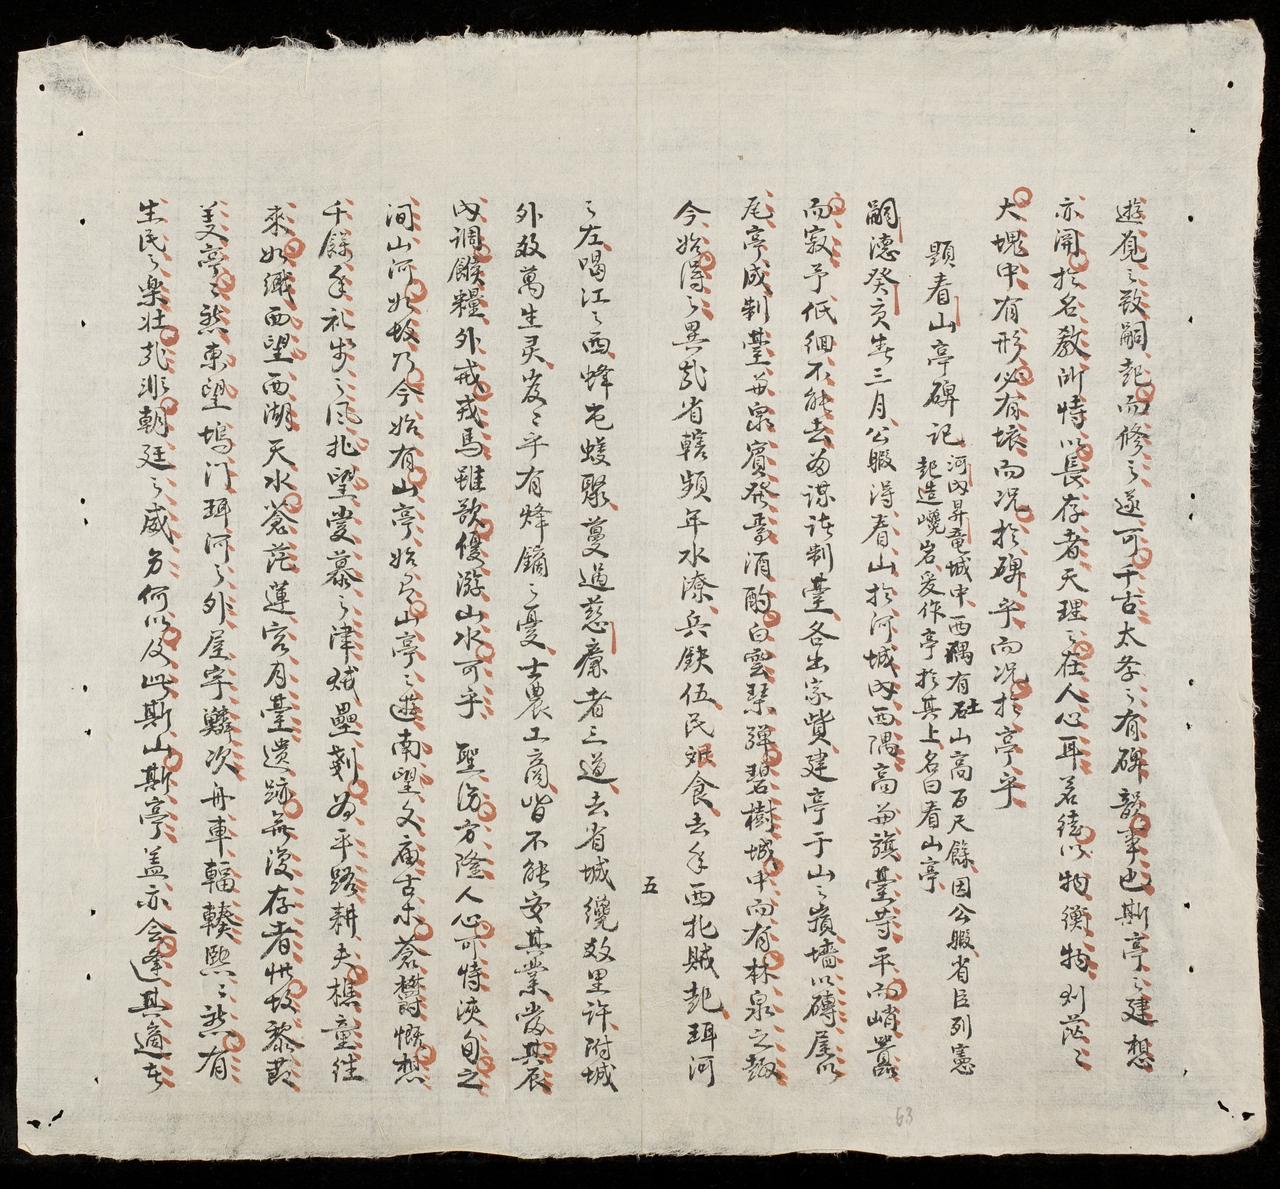 遊覓之致嗣起而修之遂可千古太孝之有碑韻事也斯亭之建想
亦開於名教所恃以長存者天理之在人心耳若徒以物衡物則茫之
大塊中有形必有壞而况於碑乎而况於亭乎
題看山亭碑記
河内昇竜城中西隅有砫山高百尺餘因公暇省臣列憲
起造巉岩爰作亭於其上名曰看山亭
嗣德癸亥春三月公暇得看山於河城内西隅高並旗臺等平而峭囂
而寂予低徊不能去為謀諸制臺各出家貲建亭于山之嶺墻以磚屋以
尾亭成制臺並泉賓發豪酒酌白雲琴彈碧樹城中而有林泉之趣
今始得之異哉省轄頻年水潦兵鈌伍民艱食去年西北賊起珥河
五
之左喝江之西蜂屯蟻聚蔓過慈廉者三道去省城纔数里許附城
外数萬生灵岌之乎有烽鏑之憂士農工商皆不能安其業當其辰
内調餱糧外戒戎馬雖欲優游山水可乎 聖澇方隆人心可恃浹旬之
间山河如故乃今始有山亭始有山亭之遊南望文庙古木蒼欝慨想
千餘年礼安之風北望愛慕之津賊壘剗為平路耕夫樵童往
來如織西望西湖天水蒼茫蓮宮月臺遺跡無復存者惟故黎
美亭之然東望塢门珥河之外屋宇鱗次舟車輻輳熙之然有
生民之樂壯哉非朝廷之威力何以及此斯山斯亭盖亦会逢其適在
63